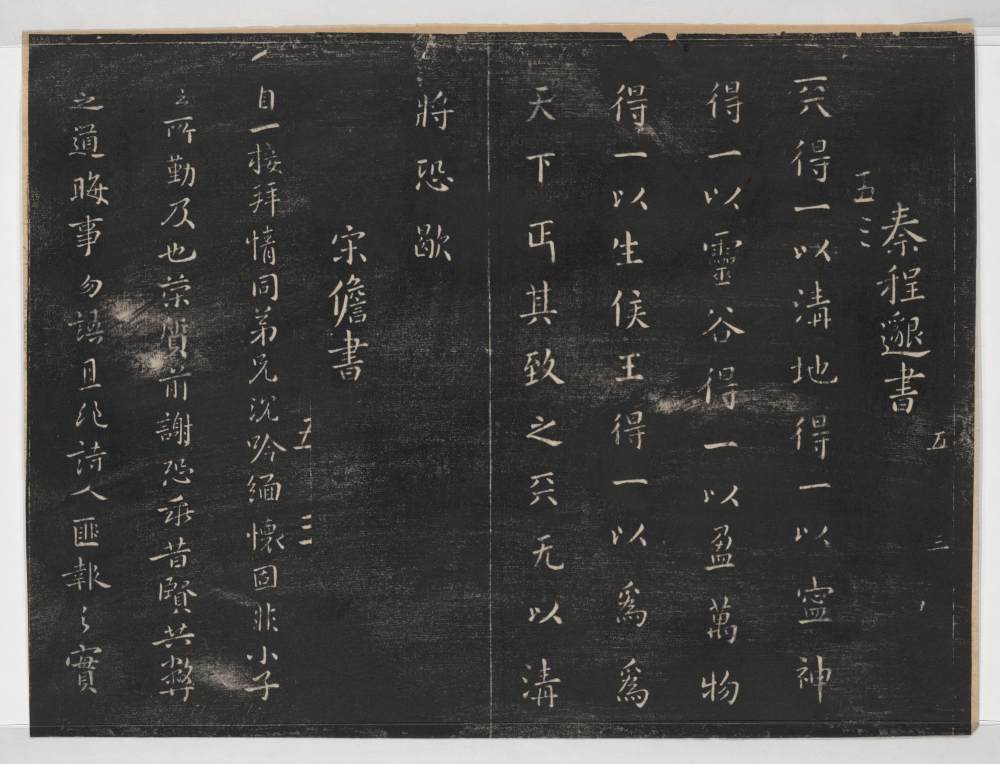 秦程邈書
五
三
五三
天得一以清地得一以寍神
得一以靈谷得一以盈萬物
得一以生侯王得一以爲爲
天下正其致之天无以清
將恐歇
宋儋書
五
三
自一接拜情同弟兄沉吟緬懷固非小子
之所勤及也榮質前謝恐乖昔賢共弊
之道晦事勿諼且訛詩人匪報之實